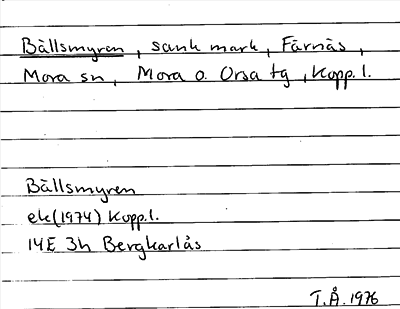 Bällsmyren, sank mark, Färnäs,
Mora sn, Mora o. Orsa tg, Kopp. l.
Bällsmyren
ek(1974) Kopp. l.
14E 3h Bergkarlås
T.Å. 1976